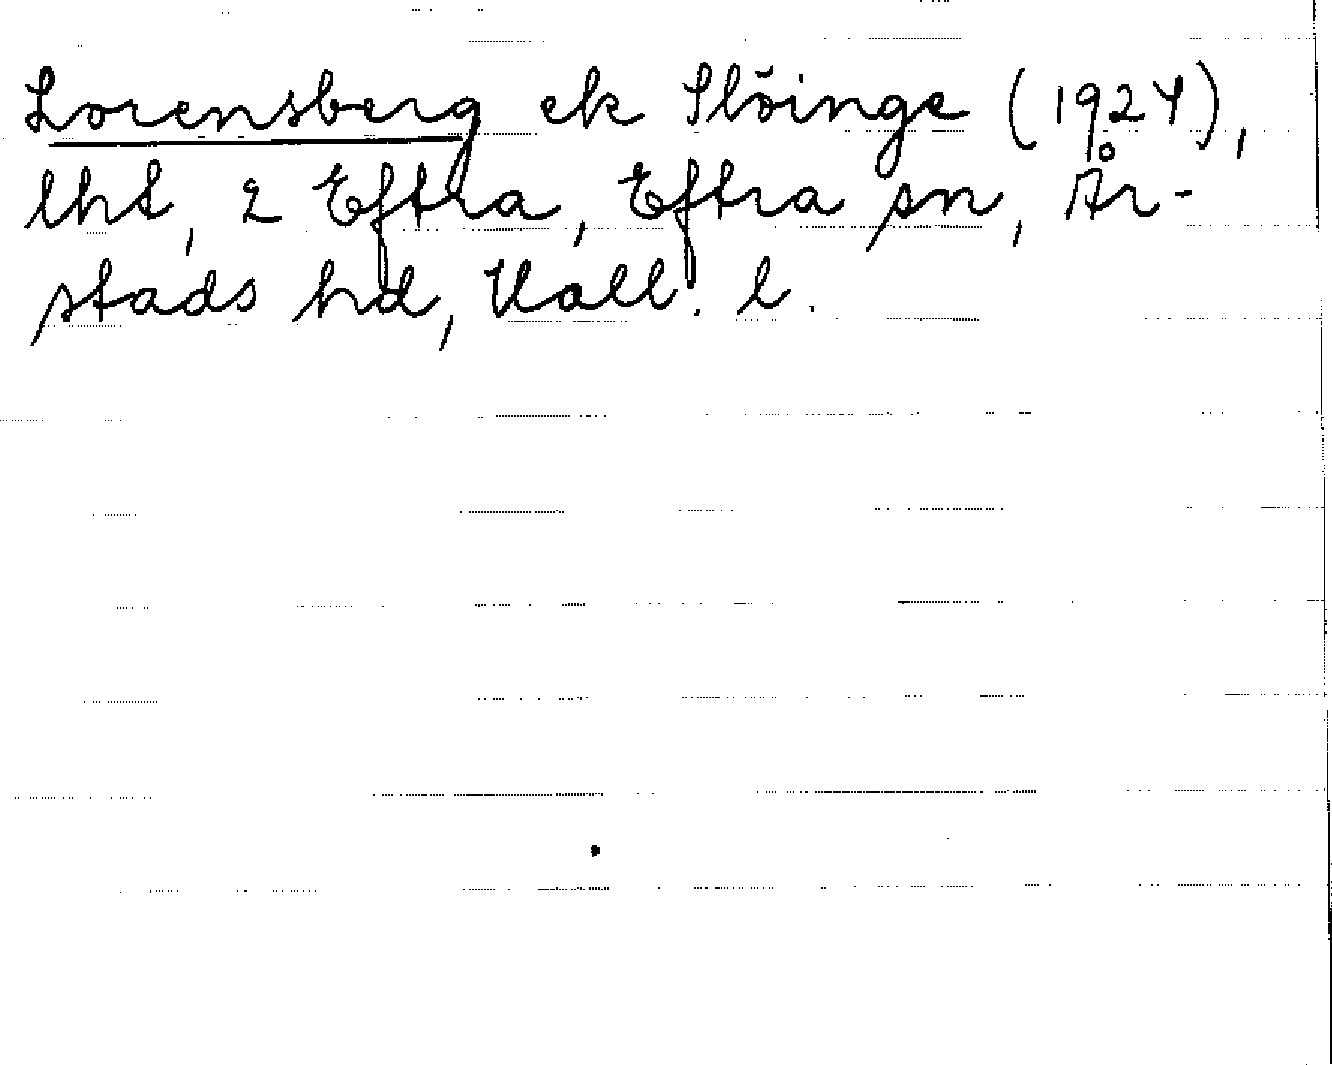 Lorensberg ek Slöinge (1924),
lht, 2 Eftra, Eftra sn, År-
stads hd, Hall. l.